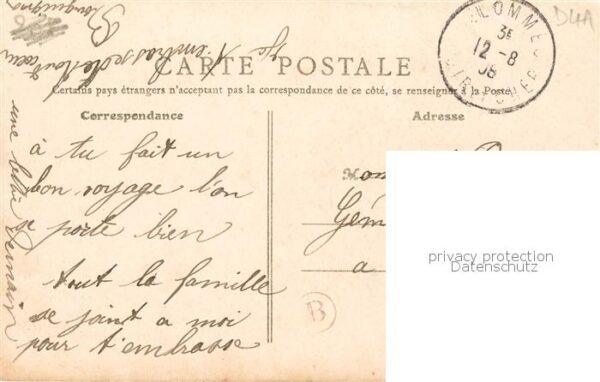 D4A
CARTE POSTALE
Certains pays étrangers n'acceptant pas la correspondance de ce côté, se renseigner à la Poste.
Correspondance
Adresse
3E
12 - 8
08
à tu fait un
bon voyage l'on
se porte bien
tout la famille
se joint a moi
pour t'embrasse
une
t'embrasse de tout cœur
M
a
B
privacy protection
Datenschutz